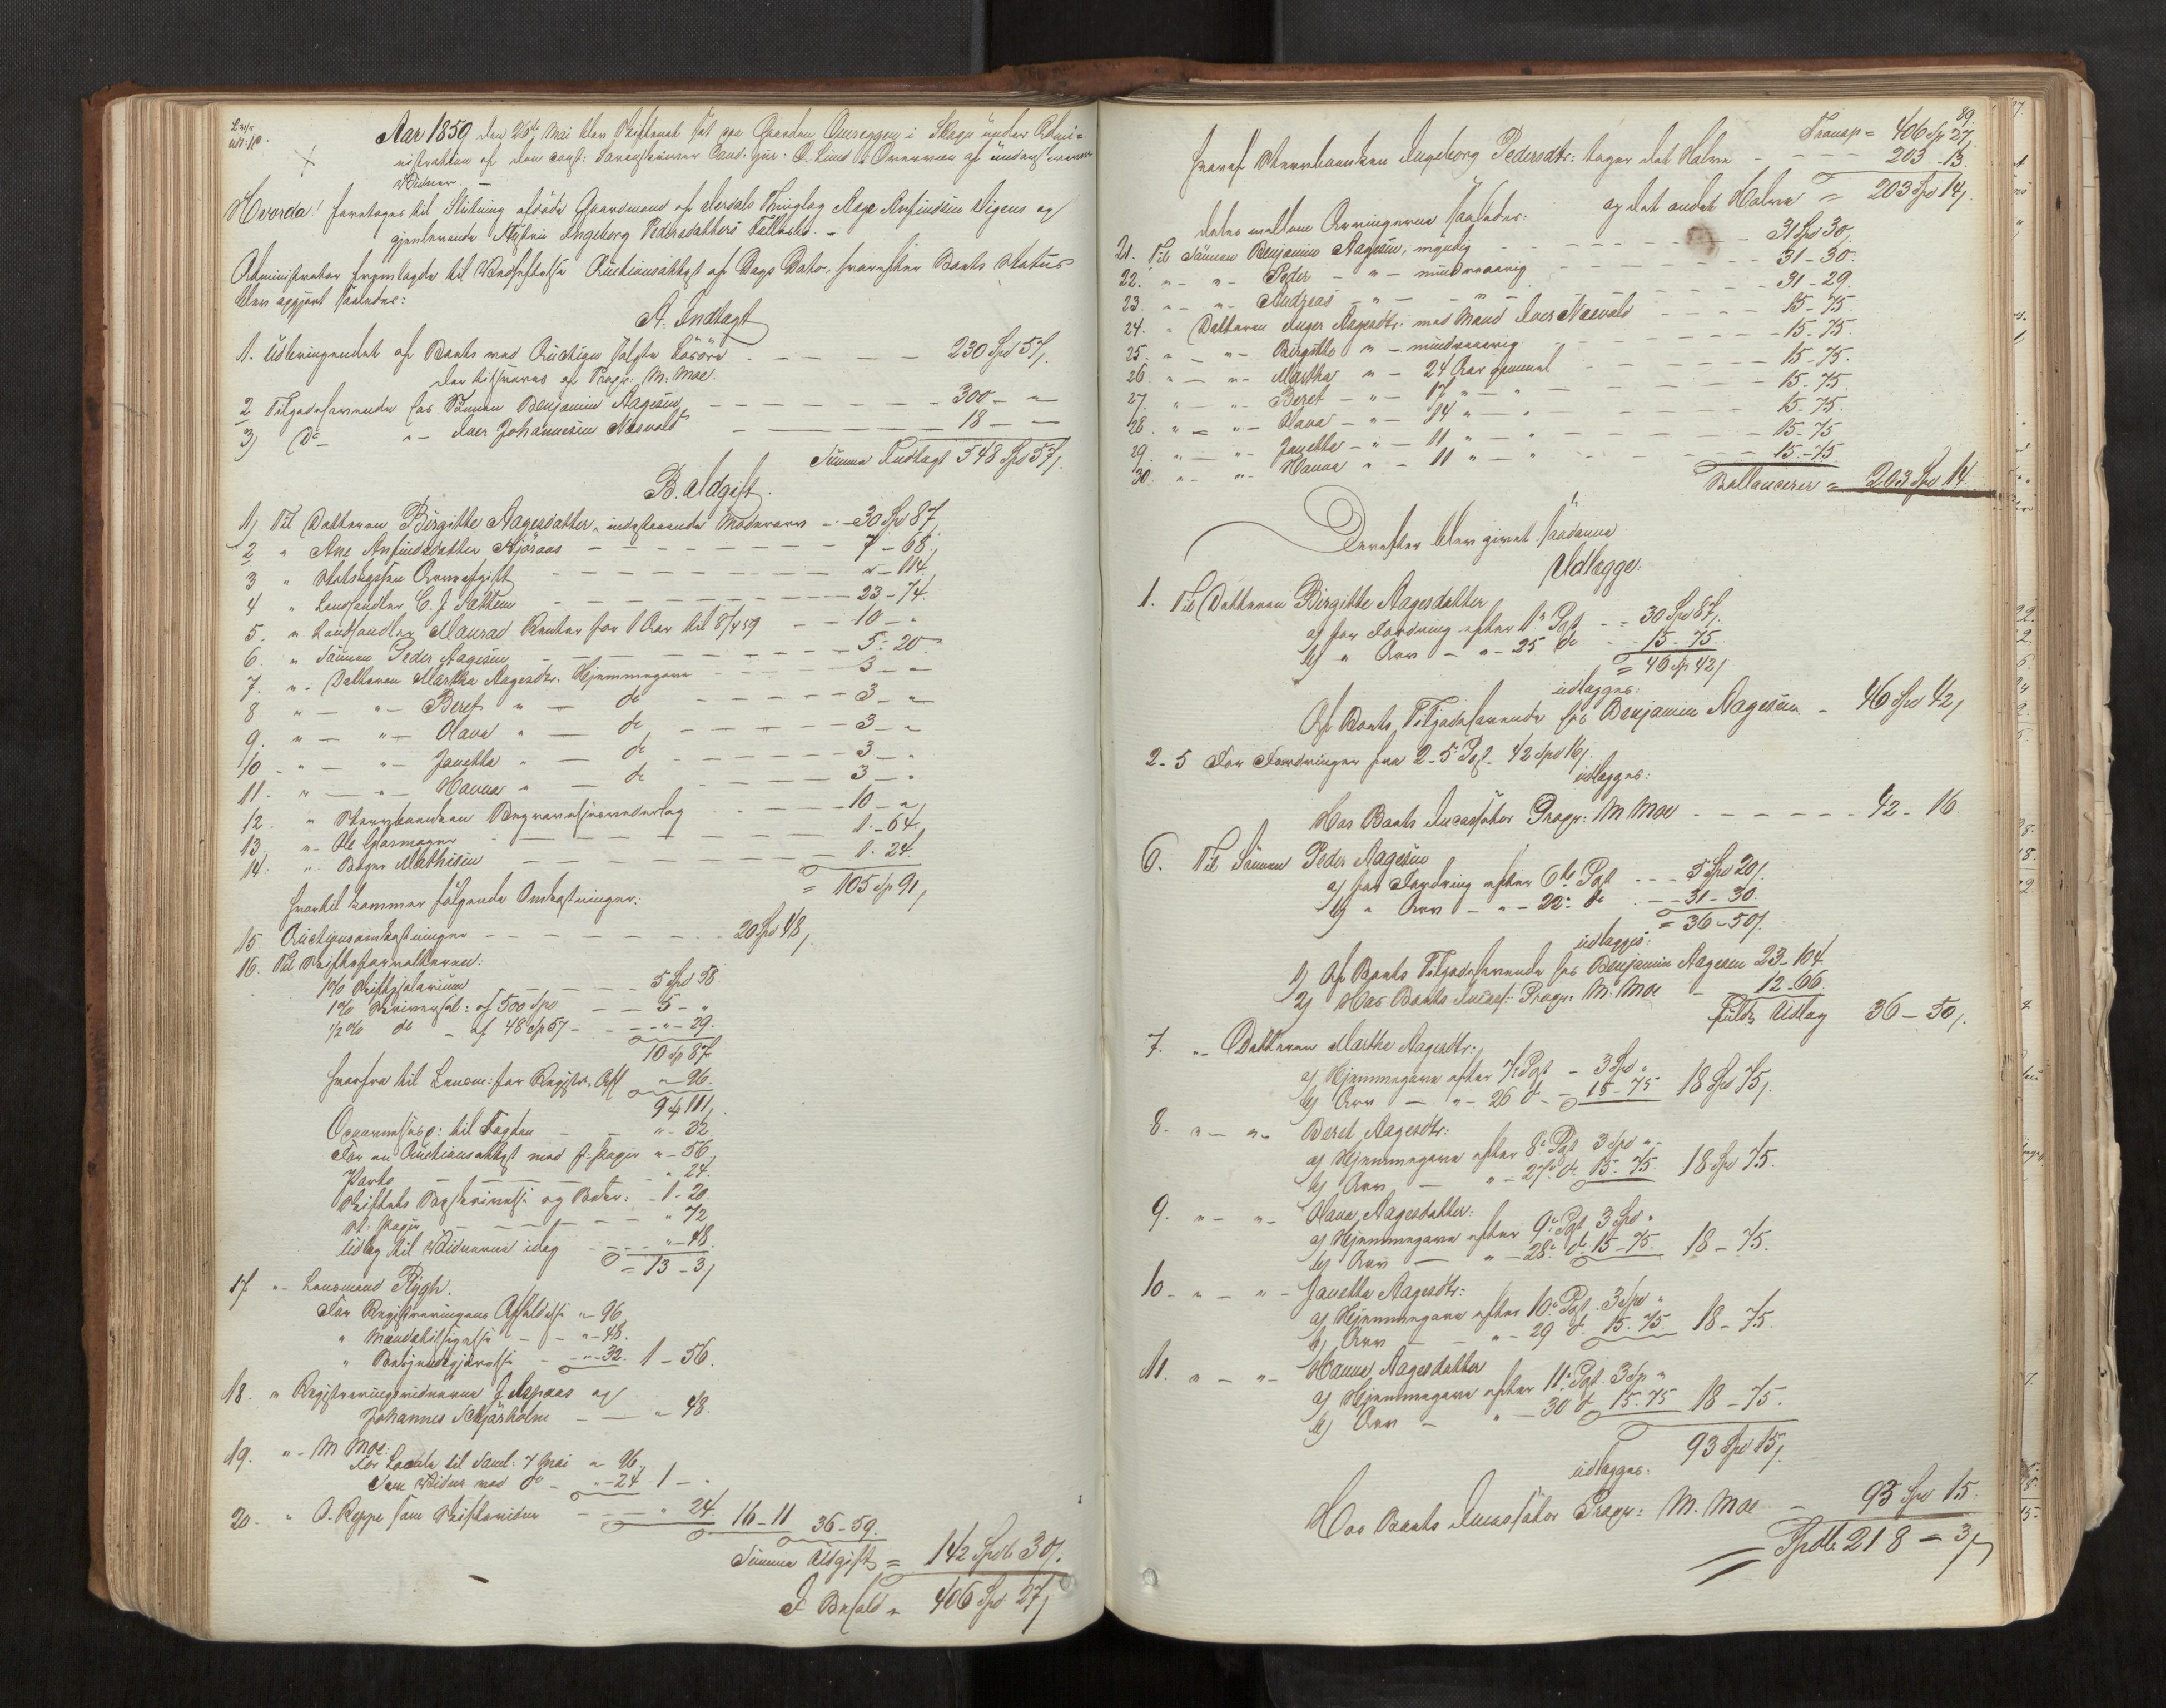 Aar 1859 den 26de Mai blev Skifteret sat paa Gaarden Overeggen i Skogn under Admi=
nistration af den const: Sorenskriver Cand. jur. O. Lund i Overvær af underskrevne
Vidner. –
Hvorda! foretoges til Slutning afdøde Gaardmand af Værdals Thinglag Aage Anfindsen Vigens og
gjenlevende Ingeborg Pedersdatters Fællesbo. –
Administrator fremlagde til Vedhæftelse Auctionsattest af Dags Dato, hvorefter Boets Status
blev opgjort saaledes:
A. Indtægt
1. Udbringendet af Boets ved Auction solgte Løsøre – – – 230 Spd 57/.
der tilsvares af Progr: M. Moe.
2 Tilgodehavende hos Sønnen Benjamin Aagesen – – – 300 – "
3) Do " – Iver Johannesen Næsvold – – – 18 – "
Summa Indtægt 548 Spd 57/.
B. Udgift.
1) Til Datteren Birgitte Aagesdatter, indestaaende Mødrearv – 30 Spd 87/
2 " Ane Anfindsdatter – – – 7 – 68/
3 " Statskassen Arveafgift – – – " – 114
4 " Landhandler C. J. – – – 23 – 74.
5. " Landhandler Renter for 1 Aar til 8/4 59 – – 10 – "
6. " Sønnen Peder Aagesen – – – 5 – 20
7. " – Datteren Martha Aagesdtr. Hjemmegave – – – 3 – "
8 " – " – Beret " – do – – – 3 – "
9. " – " – Olava " – do – – – 3 – "
10 – " – " – Janetta " – do – – – 3 – "
11 – " – " – Hanna " – do – – – 3 – "
12. " Stervboenken Begravelsesvederlag – – – 10 – "
13. " – Ole Glasmager – – – 1 – 64
14. " Bager Mathisen – – – 1 – 24.
= 105 Sp 91/
hvortil kommer følgende Omkostninger:
15 Auctionsomkostninger – – – 20 Spd 48/
16. Til Skifteforvalteren:
1% Skiftesalarium – – – 5 Spd 58
1% Skriversal: af 500 Spd – – 5 – "
1/2 % do – af 48 Sp 57 – – – " – 29.
10 Sp 87
herfra til Lensm: for Registr. Aff " – 96.
9 Sp 111/
til Fogden – – " – 32
For en Auctionsattest med st. Papir " – 56
Porto – – – " 24
Skiftets Beskrivelse og Bøder: – 1 – 20.
St: Papir – – – " 72
Udlæg til Vidnerne idag – – – " – 48.
= 13 – 3/
17 " – Lensmand Rygh.
For Registreringens Afholdelse " – 96
" Mandstilsigelse – – " – 48.
" Bekjendtgjørelse – – " – 32. 1 – 56.
18. " Registreringsvidnerne J. Aspaas og
Johannes – – " 48
19. " – M Moe:
For Locale til Saml: 7 Mai " 96.
Som Vidne ved do – " – 24 1 – "
20 – " O. Reppe som Skiftevidne – – – " 24. 16 – 11 36 – 59.
Summa Udgift = 142 Spdlr 30/.
I Behold = 406 Spd 27/
89.
Transp = 406 Sp 27.
Heraf Sterfboenken Ingeborg Pedersdtr: tager det Halve – – – 203 – 13.
og det andet Halve = 203 Spd 14/.
deles mellem Arvingerne saaledes:
21. Til Sønnen Benjamin Aagesen, myndig – – – 31 Spd 30/.
22. " – " – Peder – " – mindreaarig – – – 31 – 30.
23. " – " – Andreas – " – " – – – – 31 – 29.
24. " Datteren Inger Aagesdtr: med Mand Iver Næsvold – – – 15 – 75.
25. " – " – Birgitte " – mindreaarig – – – 15 – 75.
26 " – " – Martha " – 24 Aar gammel – – – 15 – 75.
27. " – " – Beret – " – 17 " – " – – – 15 – 75.
28. " – " – Olava – " – 14 " – " – – – 15 – 75.
29. " – " – Janetta – " – 11 " – " – – – 15 – 75
30. " – " – Hanna " – 11 " – " – – – 15 – 75
Ballancerer = 203 Spd 14.
Derefter blev givet saadanne
Udlægge:
1. Til Datteren Birgitte Aagesdatter
a) for Fordring efter 1e Pgt – – 30 Spd 87/.
b) " Arv – " – 25 do – – 15 – 75
= 46 Sp 42/
udlægges:
Af Boets Tilgodehavende hos Benjamin Aagesen – 46 Spd 42/
2 – 5 For Fordringer fra 2 – 5 Pgt – 42 Spd 16/.
udlægges:
Hos Boets Incassator Progr: M Moe – – – 42 – 16
6. Til Sønnen Peder Aagesen
a) for Fordring efter 6te Pgt – – – 5 Spd 20/.
b) " Arv – " – 22: do – – 31 – 30.
= 36 – 50/.
udlægges:
1) Af Boets Tilgodehavende hos Benjamin Aagesen 23 – 104
2) Hos Boets Incass: Progr: M. Moe – 12 – 66.
fuldt Udlæg 36 – 50/.
7. " – Datteren Martha Aagesdtr:
a) Hjemmegave efter 7. Pgt – 3 Spd "
b) Arv – " – 26 do – 15 – 75 18 Spd 75/.
8. " – " – Beret Aagesdtr:
a) Hjemmegave efter 8. Pgt 3 Spd "
b) Arv – " – 27. do 15 – 75 18 Spd 75.
9. " – " – Olava Aagesdatter:
a) Hjemmegave efter 9. Pgt 3 Spd "
b) Arv – " – 28. do 15 – 75. 18 – 75.
10 – " – " – Janetta Aagesdtr:
a) Hjemmegave efter 10. Pgt. 3 Spd "
b) Arv – " – 29 do 15. 75. 18 – 75.
11. " – " – Hanna Aagesdatter
a) Hjemmegave efter 11. Pgt. 3 Sp "
b) Arv – " – 30 do 15. 75 18 – 75.
93 Spd 15/.
udlægges:
Hos Boets Incassator Progr: M. Moe – 93 Spd 15.
Spdlr 218 – 3/